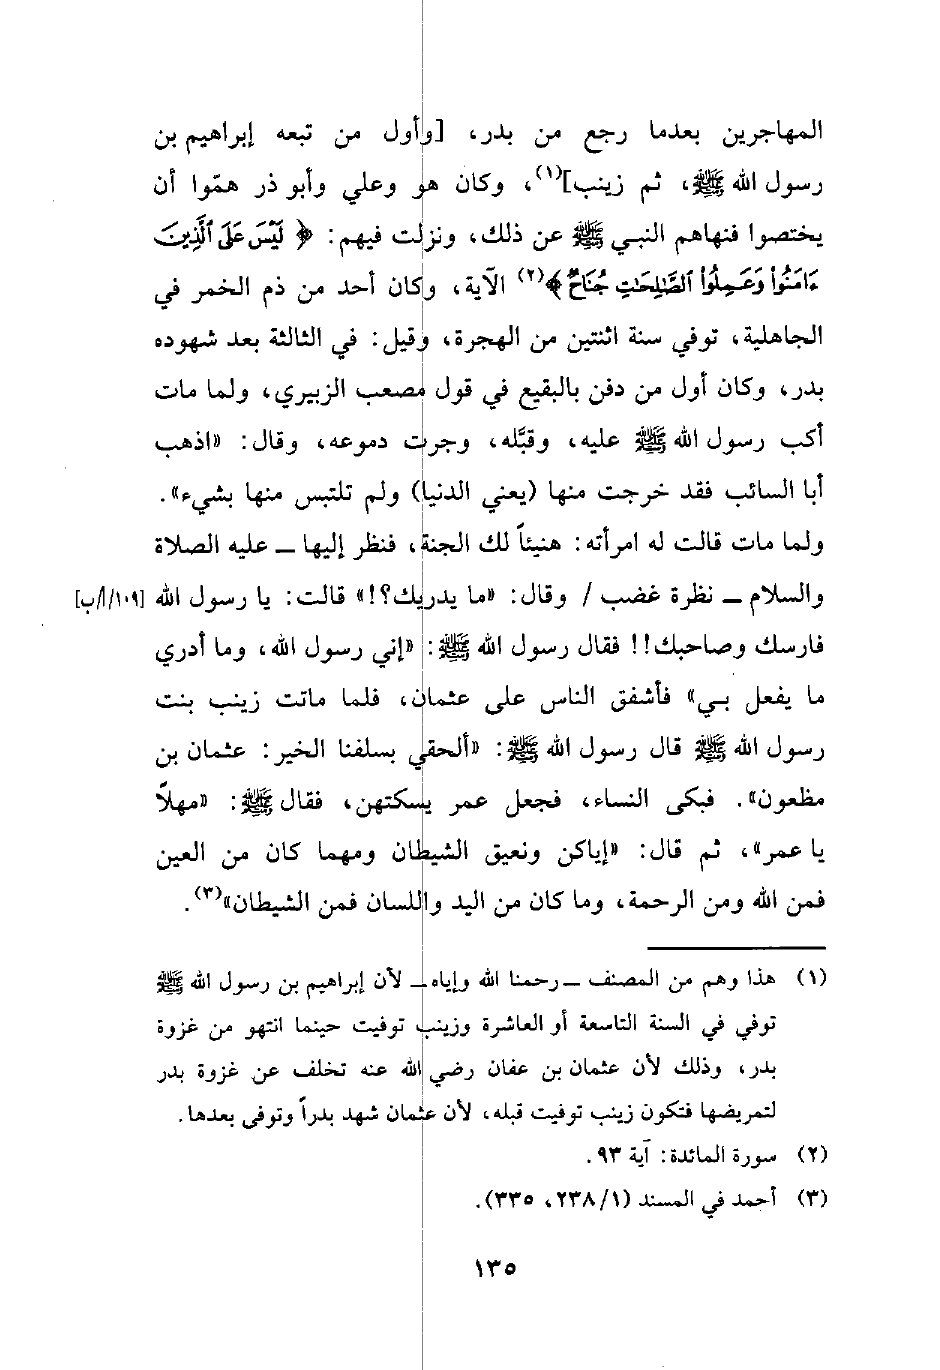 المهاجرين بعدما رجع من بدر، [وأول من تبعه إبراهيم بن
رسول الله ﷺ، ثم زينب]⁽١⁾، وكان هو وعلي وأبو ذر همّوا أن
يختصوا فنهاهم النبي ﷺ عن ذلك، ونزلت فيهم: ﴿ لَيْسَ عَلَى ٱلَّذِينَ
ءَامَنُوا۟ وَعَمِلُوا۟ ٱلصَّـٰلِحَـٰتِ جُنَاحٌ ﴾⁽٢⁾ الآية، وكان أحد من ذم الخمر في
الجاهلية، توفي سنة اثنتين من الهجرة، وقيل: في الثالثة بعد شهوده
بدر، وكان أول من دفن بالبقيع في قول مصعب الزبيري، ولما مات
أكب رسول الله ﷺ عليه، وقبَّله، وجرت دموعه، وقال: «اذهب
أبا السائب فقد خرجت منها (يعني الدنيا) ولم تلتبس منها بشيء».
ولما مات قالت له امرأته: هنيئاً لك الجنة، فنظر إليها ــ عليه الصلاة
والسلام ــ نظرة غضب / وقال: «ما يدريك؟!» قالت: يا رسول الله [١٠٩/أ/ب]
فارسك وصاحبك!! فقال رسول الله ﷺ: «إني رسول الله، وما أدري
ما يفعل بي» فأشفق الناس على عثمان، فلما ماتت زينب بنت
رسول الله ﷺ قال رسول الله ﷺ: «ألحقي بسلفنا الخير: عثمان بن
مظعون». فبكى النساء، فجعل عمر يسكتهن، فقال ﷺ: «مهلاً
يا عمر»، ثم قال: «إياكن ونعيق الشيطان ومهما كان من العين
فمن الله ومن الرحمة، وما كان من اليد واللسان فمن الشيطان»⁽٣⁾.
(١) هذا وهم من المصنف ــ رحمنا الله وإياه ــ لأن إبراهيم بن رسول الله ﷺ
توفي في السنة التاسعة أو العاشرة وزينب توفيت حينما انتهو من غزوة
بدر، وذلك لأن عثمان بن عفان رضي الله عنه تخلف عن غزوة بدر
لتمريضها فتكون زينب توفيت قبله، لأن عثمان شهد بدراً وتوفى بعدها.
(٢) سورة المائدة: آية ٩٣.
(٣) أحمد في المسند (١/٢٣٨، ٣٣٥).
١٣٥